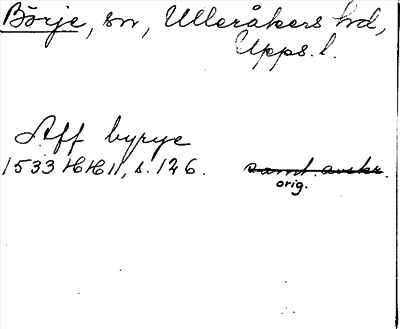 Börje, sn, Ulleråkers hd,
Upps. l.
Aff byrye
1533 HH 11, s. 126. samt. avskr.
orig.